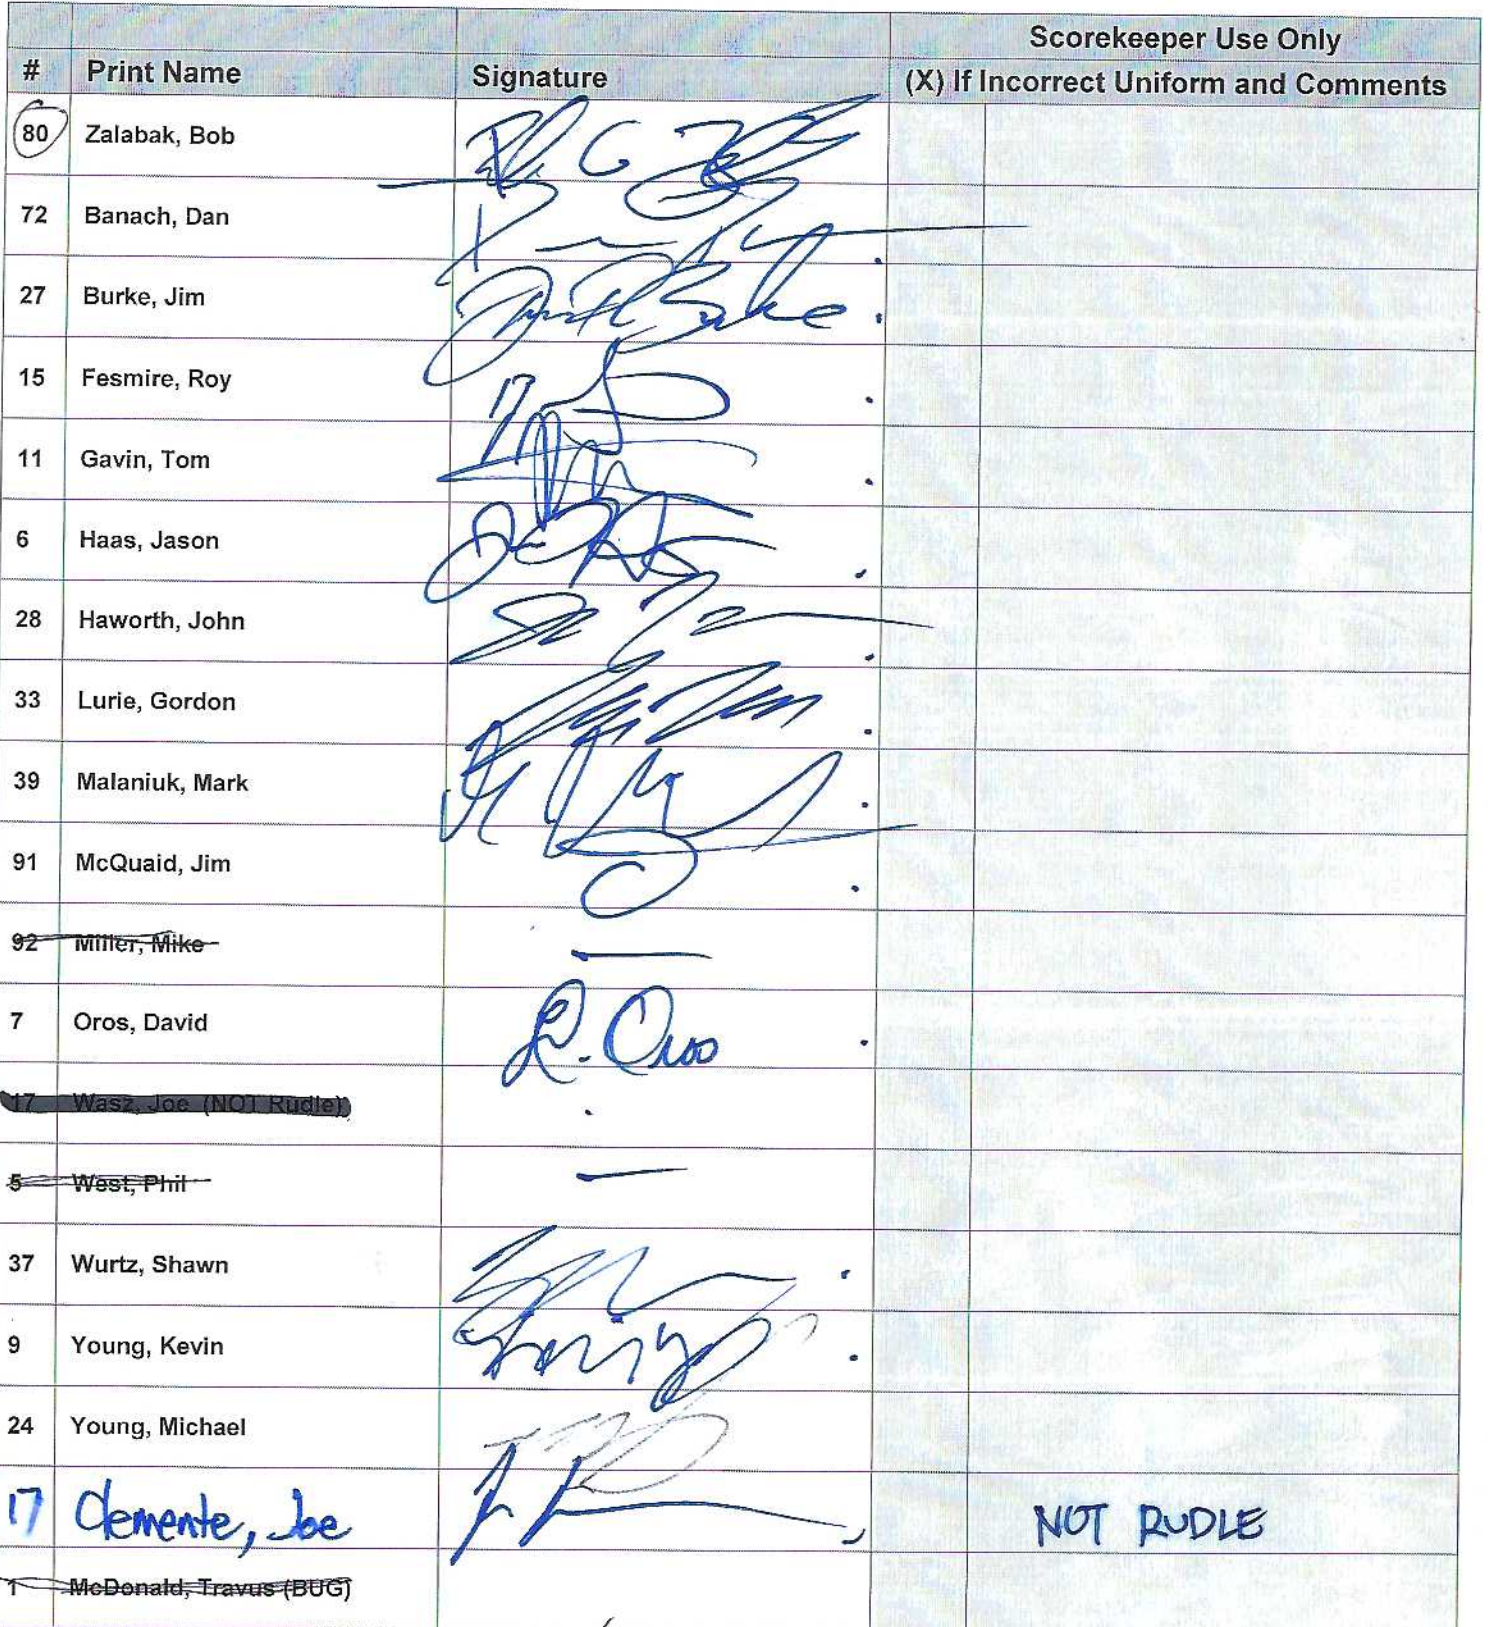 Scorekeeper Use Only
# Print Name Signature (X) If Incorrect Uniform and Comments
80 Zalabak, Bob
72 Banach, Dan
27 Burke, Jim
15 Fesmire, Roy
11 Gavin, Tom
6 Haas, Jason
28 Haworth, John
33 Lurie, Gordon
39 Malaniuk, Mark
91 McQuaid, Jim
92 Miller, Mike
7 Oros, David D. Oros
17 Wasz, Joe (NOT Rudle)
5 West, Phil
37 Wurtz, Shawn
9 Young, Kevin
24 Young, Michael
17 Clemente, Joe NOT RUDLE
1 McDonald, Travus (BUG)